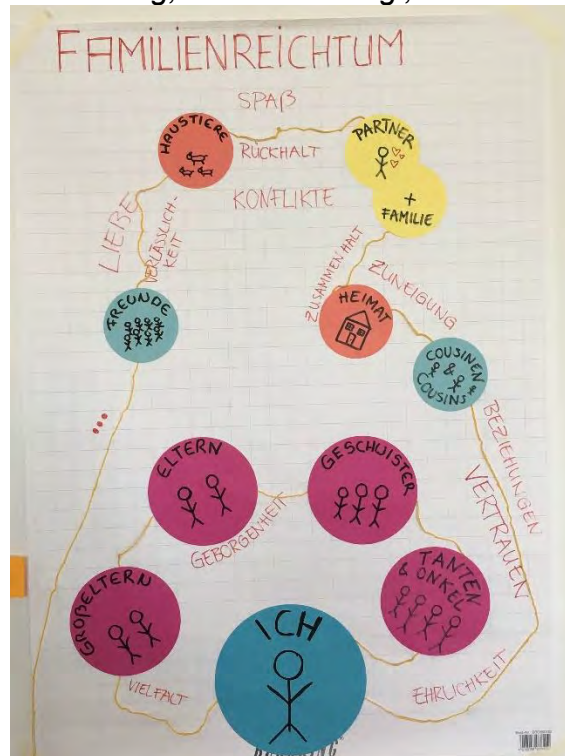 FAMILIENREICHTUM
SPAß
HAUSTIERE
RÜCKHALT
PARTNER
KONFLIKTE
+
FAMILIE
LIEBE
VERLÄSSLICH-
KEIT
ZUSAMMENHALT
ZUNEIGUNG
FREUNDE
HEIMAT
COUSINEN
&
COUSINS
...
BEZIEHUNGEN
VERTRAUEN
ELTERN
GESCHWISTER
GEBORGENHEIT
TANTEN
& ONKEL
GROßELTERN
ICH
VIELFALT
EHRLICHKEIT